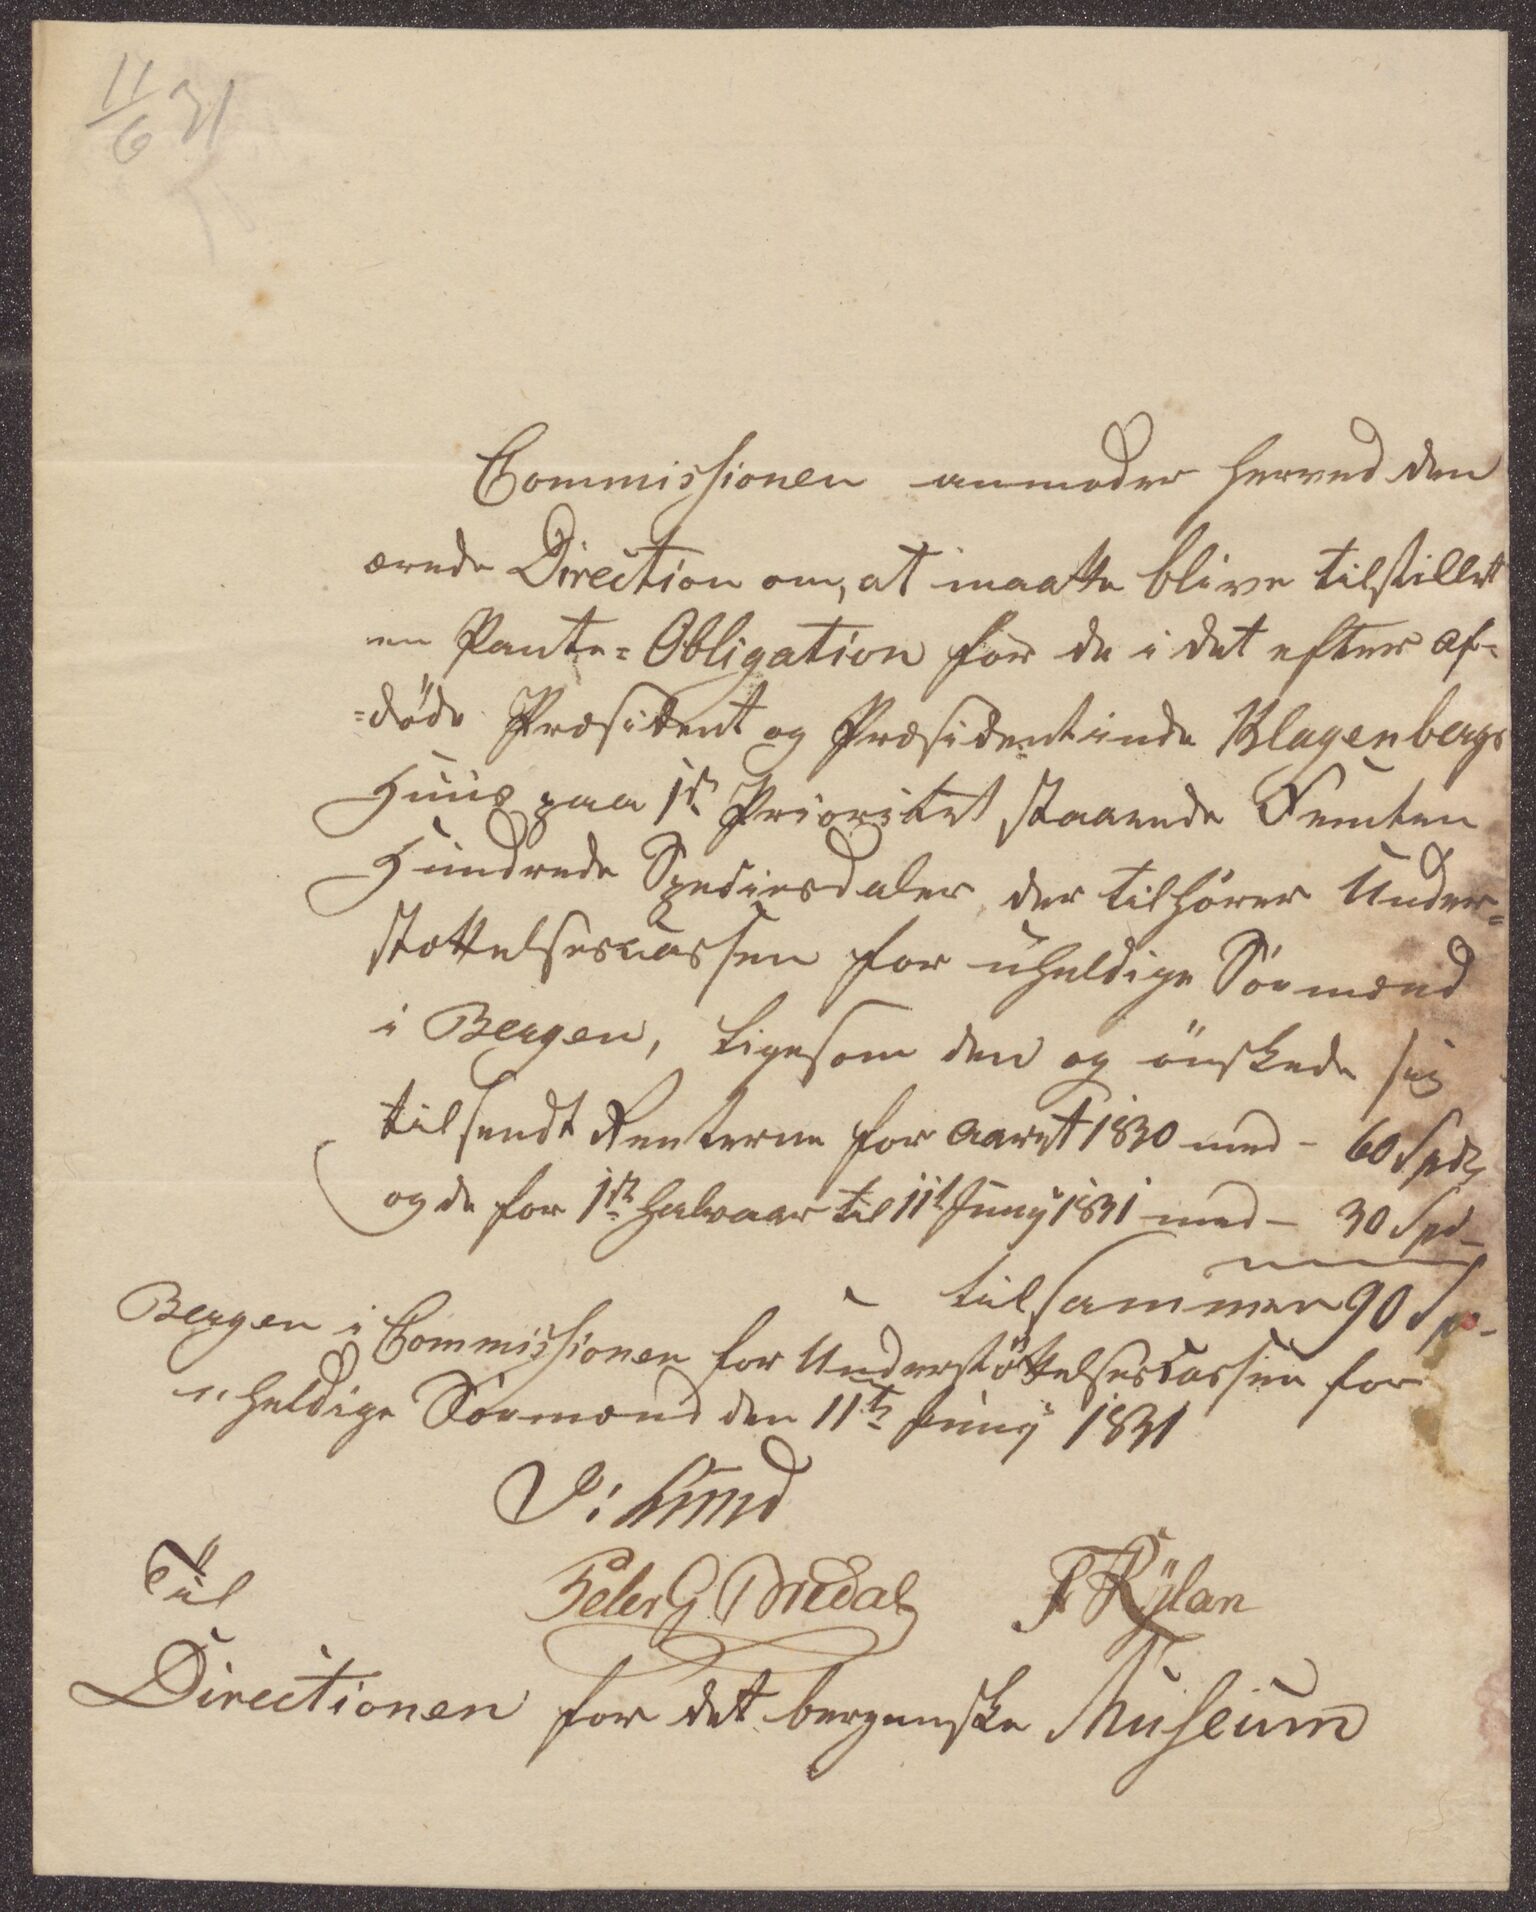 11/6 31
Commissionen anmoder herved den
ærede Direction om, at maatte blive tilstillet
en Pante=Obligation for de i det efter af-
=døde Præsident og Præsidentinde Klagenbergs
Huus paa 1ste Prioritet staaende Femten
Hundrede Speciesdaler der tilhører Under=
støttelsescassen for uheldige Søemænd
i Bergen, ligesom den og ønskede sig
tilsendt Renterne for Aaret 1830 med - 60 Spd
og de for 1ste Halvaar til 11te Juny 1831 med - 30 Spd
tilsammen 90 Sp
Bergen i Commissionen for Understøttelsescassen for
uheldige Søemænd den 11te Juny 1831
Lund
Peter G Bredal F Rÿlan
Til
Directionen for det bergenske Museum